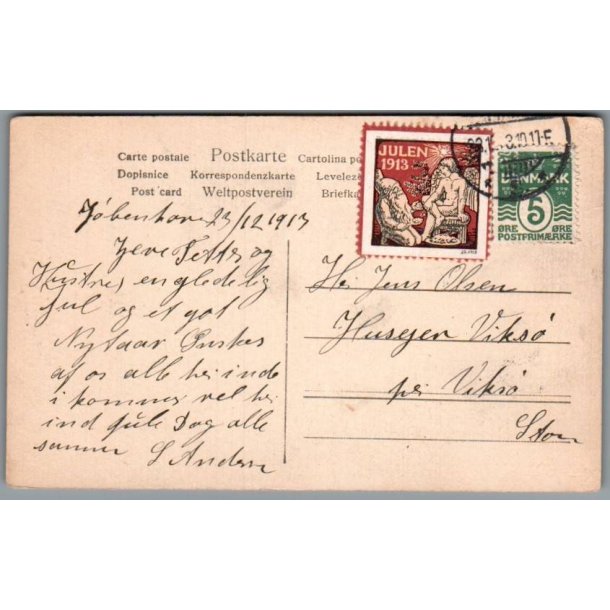 Carte postale Postkarte Cartolina po
Dopisnice Korrespondenzkarte Leveleze
Post card Weltpostverein Briefka
JULEN
1913
DANMARK
5
ØRE ØRE
POSTFRIMÆRKE
Jøbenhavn 23/12 1913
og
Hustru en gledelig
jul og et got
Nytaar Ønskes
af os alle her inde
i kommer vel her
ind jule Dag alle
sammen S Andersen
Hr. Jens Olsen
Husejer Viksø
per Viksø